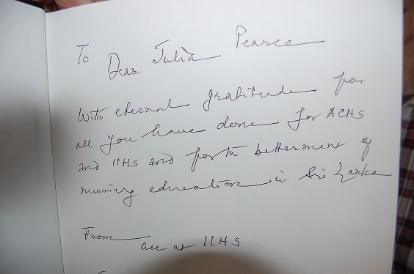 To
Dear Julia Pearce
With eternal gratitude for
all you have done for ACHS
and IIHS and for the betterment of
nursing education in Sri Lanka
From
all at IIHS